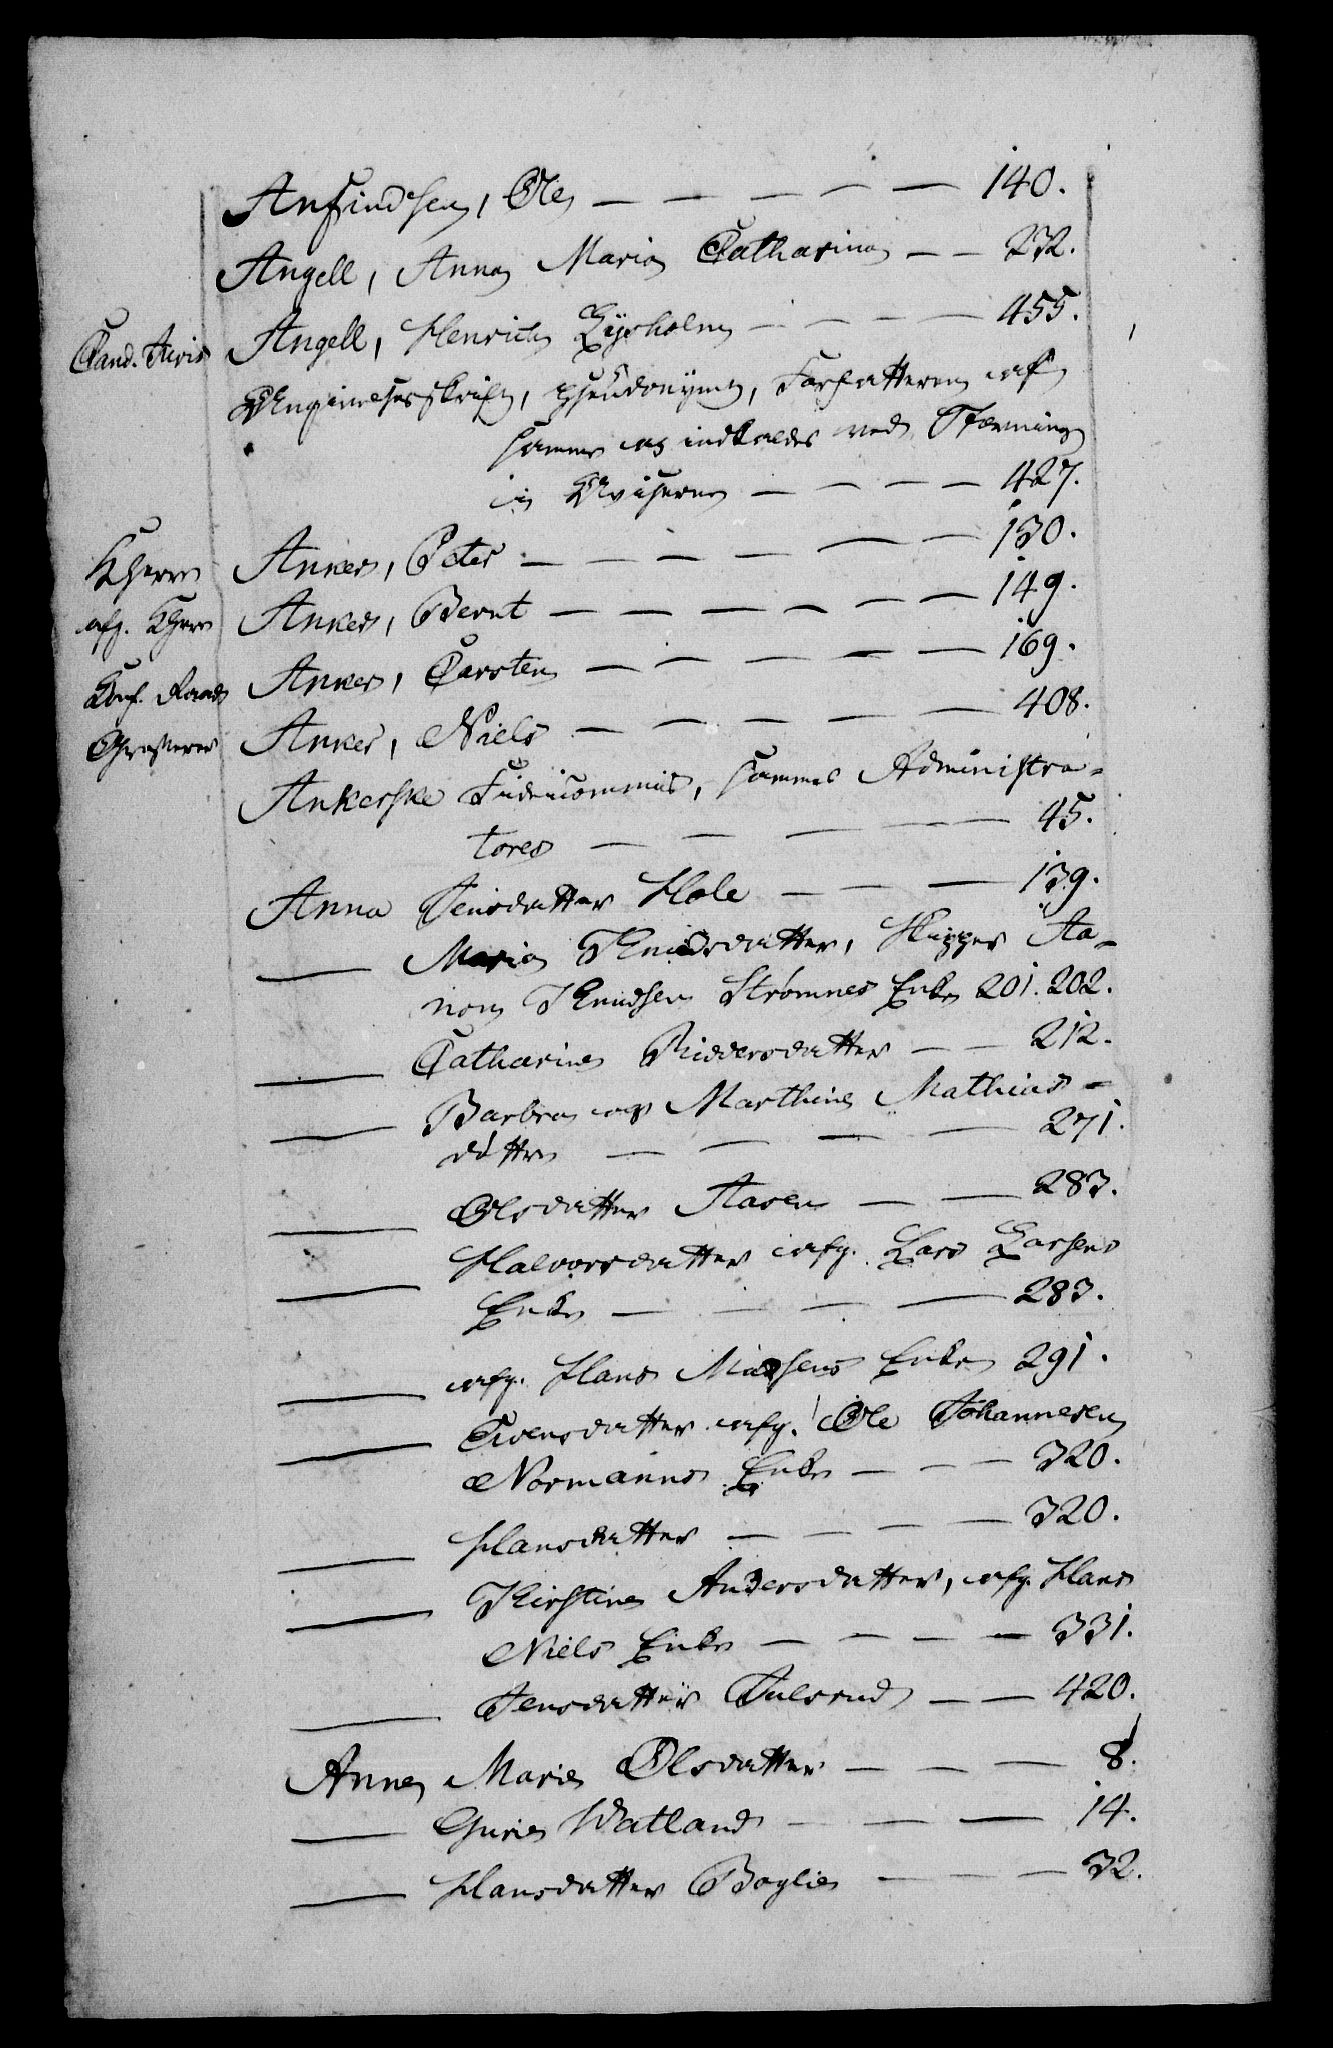 Anfindsen, Ole — — — — — 140.
Angell, Anna Maria Catharina — — 232.
Cand. Juris Angell, Henrich Lysholm — — — 455.
Angivelsesskrift, pseudonymt, Forfatteren af
samme og indkaldes ved Stevning
i Aviserne — — — — 427.
KHerre Anker, Peter — — — — — 130.
afg. KHerr Anker, Bernt — — — — — — 149.
Conf. Raad Anker, Carsten — — — — — 169.
Grosserer Anker, Niels — — — — — 408.
Ankerske Fideicommis, sammes Administra-
tores — — — — — 45.
Anna Jensdatter Hole — — — 139.
— Maria Knudsdatter, Skipper Aa-
non Knudsen Strømnes Enke 201. 202.
— Catharine Riddersdatter — — 212.
— Barbra og Marthine Mathias-
døttre — — — — 271.
— Olsdatter Aasen — — 283.
— Halvorsdatter afg. Lars Larsens
Enke — — — — 283.
— afg. Hans Madsens Enke 291.
— Evensdatter afg. Ole Johannesen
Normanns Enke — — — 320.
— Hansdatter — — — — 320.
— Kirstine Andersdatter, afg. Hans
Niels Enke — — — — 331.
— Jensdatter Julsrud — — 420.
Anne Marie Olsdatter — — — 8.
— Gurie Watland — — — 14.
— Hansdatter Boglie — — — 32.